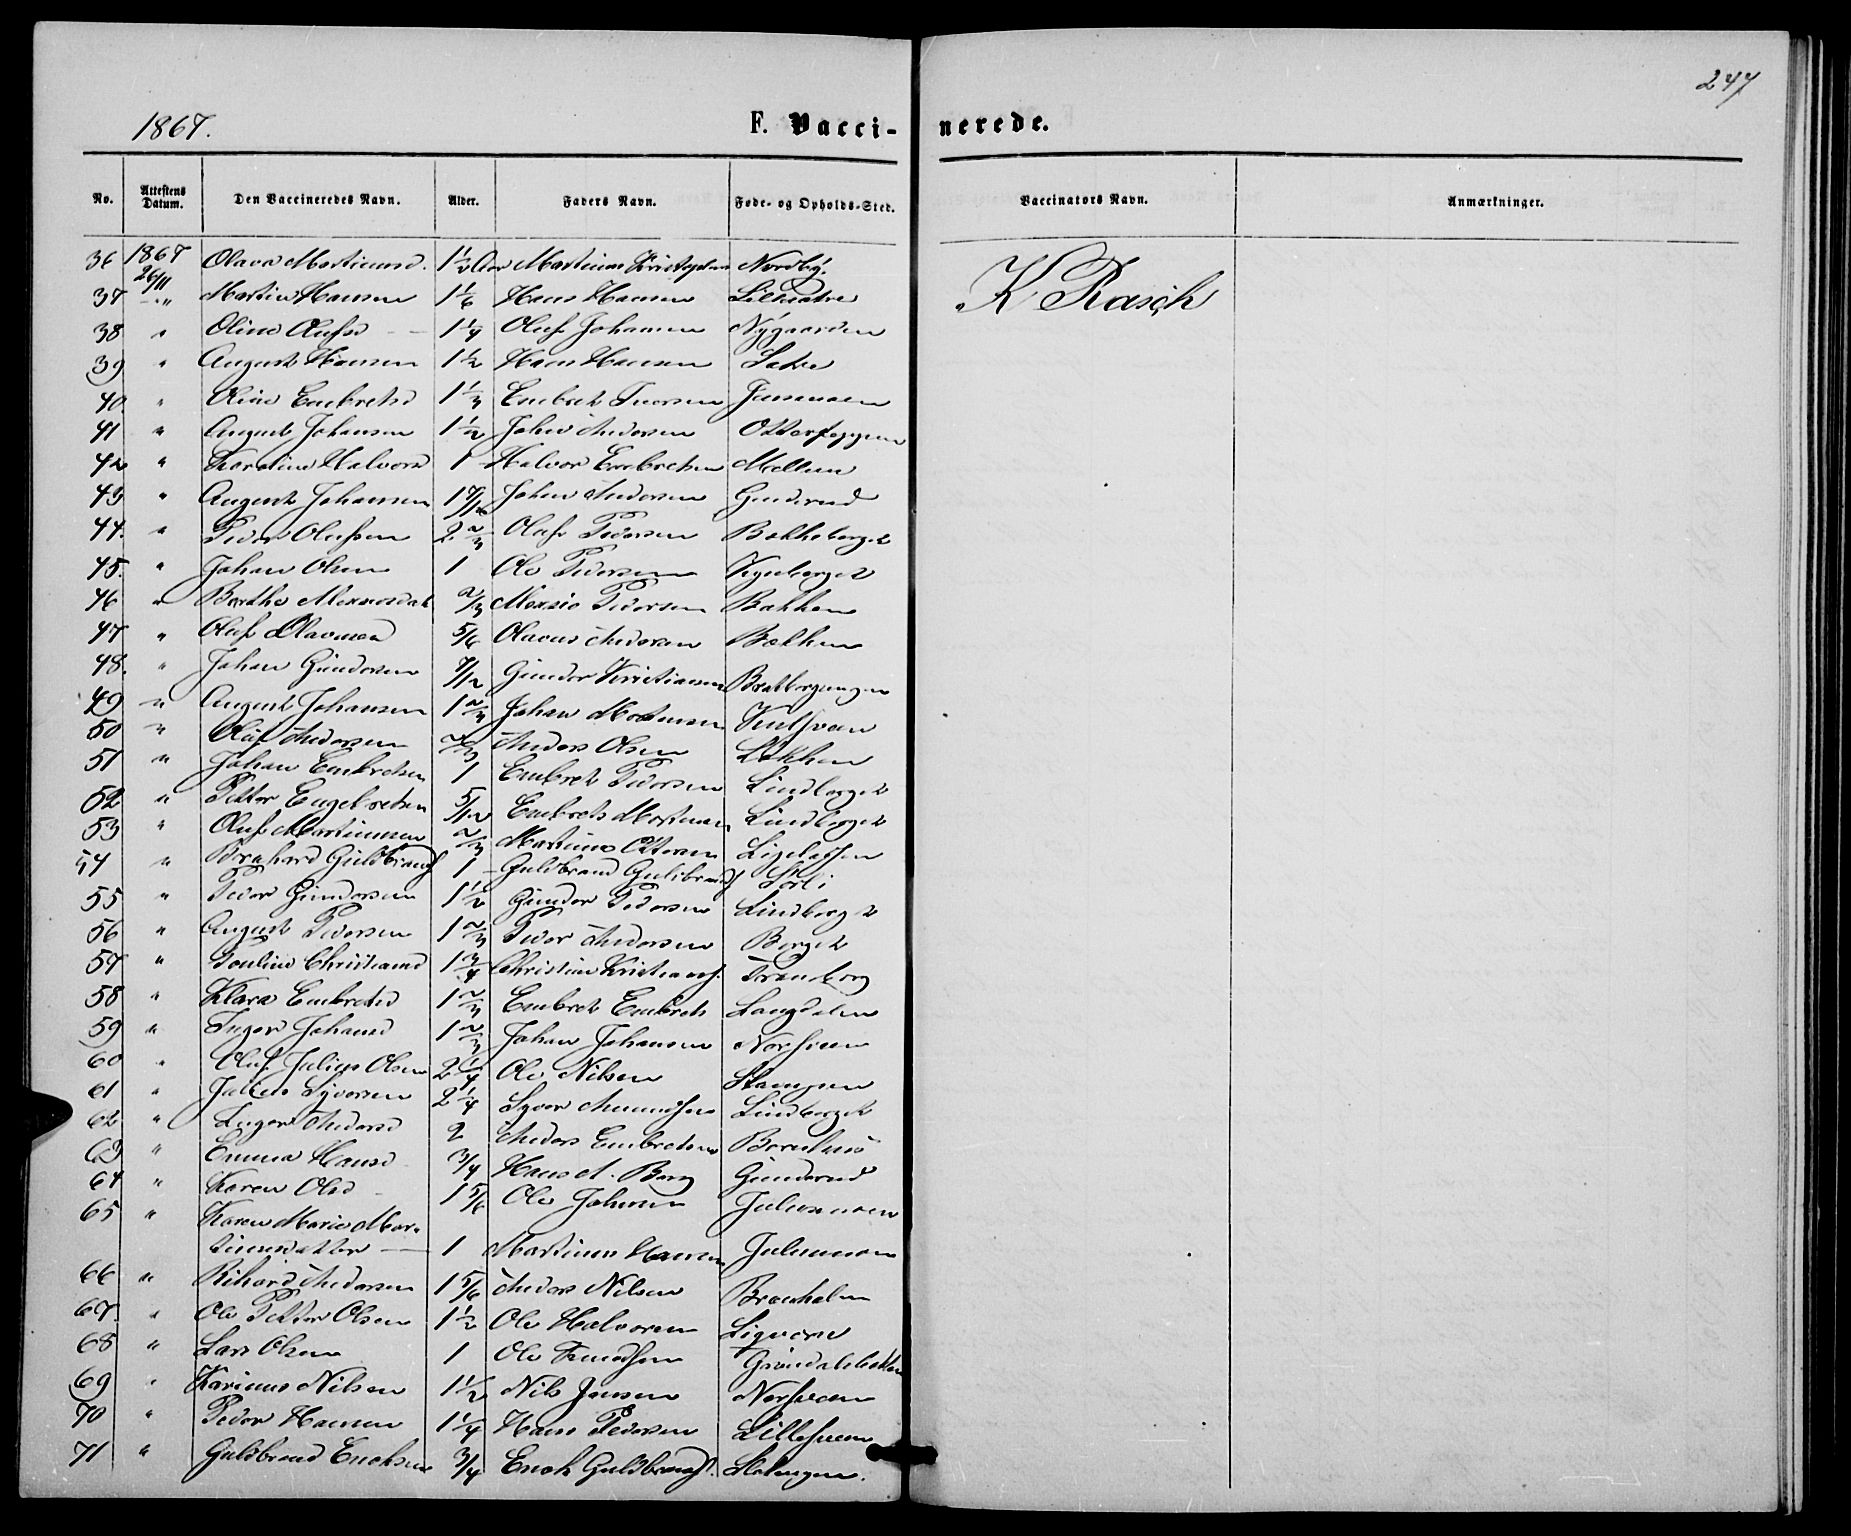 247
1867.
F. Vaccinerede.
No. Attestens Datum. Den Vaccineredes Navn. Alder. Faders Navn. Føde- og Opholds-Sted. Vaccinators Navn. Anmærkninger.
36 1867 26/11 Olava Martinusd. 1½ Aar Martinus Nordby. K Rasch
37 " Martin Hansen 1 1/6 Hans Hansen
38 " Oline Olufsd 1¼ Oluf Johansen Nygaarden
39 " August Hansen 1½ Hans Hansen Sætre
40 " Oline Embretsd 1 1/3 Embret Iversen
41 " August Johansen 1½ Johan Andersen
42 " Karoline Halvorsd 1 Halvor Embretsen Mellem
43 " August Johansen 1 7/12 Johan Andersen Gunderud
44. " Peder Olufsen 2 2/3 Oluf Pedersen Bakkeberget
45. " Johan Olsen 1 Ole Pedersen
46 " Berthe 2/3 Pedersen Bakken
47 " Oluf Olavusen 5/6 Olavus Andersen Bækken
48. " Johan Gundersen 7/12 Gunder Kristiansen
49 " August Johansen 1 2/3 Johan Mortensen
50 " Oluf Andersen 2/3 Anders Olsen Løkken
51 " Johan Embretsen 1 Embret Pedersen Lindberget
52 " Petter Engebretsen 5/12 Embret Mortensen Lindberget
53 " Oluf Martinusen 2/3 Martinus Ottersen
54 " Bernhard Guldbrands 1 Guldbrand Guldbrands
55 " Peder Gundersen 1½ Gunder Pedersen Lindberget
56 " August Pedersen 1 2/3 Peder Andersen Berget
57 " Pouline Christiansd 1¾ Christian Kristians. Tranberg
58 " Klara Embretsd 1 2/3 Embret Embrets Langdalen
59 " Inger Johansd 1 2/3 Johan Johansen Norsveen
60 " Oluf Julius Olsen 2¼ Ole Nilsen Stampen
61 " Julius Syversen 2¼ Syver Amundsen Lindberget
62 " Inger Andersd 2 Anders Embretsen
63 " Emma Hansd ¾ Hans A. Berg Gunderud
64 " Karen Olsd 1 5/6 Ole Johansen Julusmoen
65 " Karen Marie Martinusdatter 1 Martinus Hansen Julusmoen
66 " Rikard Andersen 1 5/6 Anders Nilsen
67. " Ole Petter Olsen 1½ Ole Halvorsen
68 " Lars Olsen 1 Ole Knudsen Grøndalsbakken
69 " Karinus Nilsen 1½ Nils Jensen Norsveen
70 " Peder Hansen 1¼ Hans Pedersen Lillesveen
71 " Guldbrand Enoksen ¾ Enok Guldbrands.